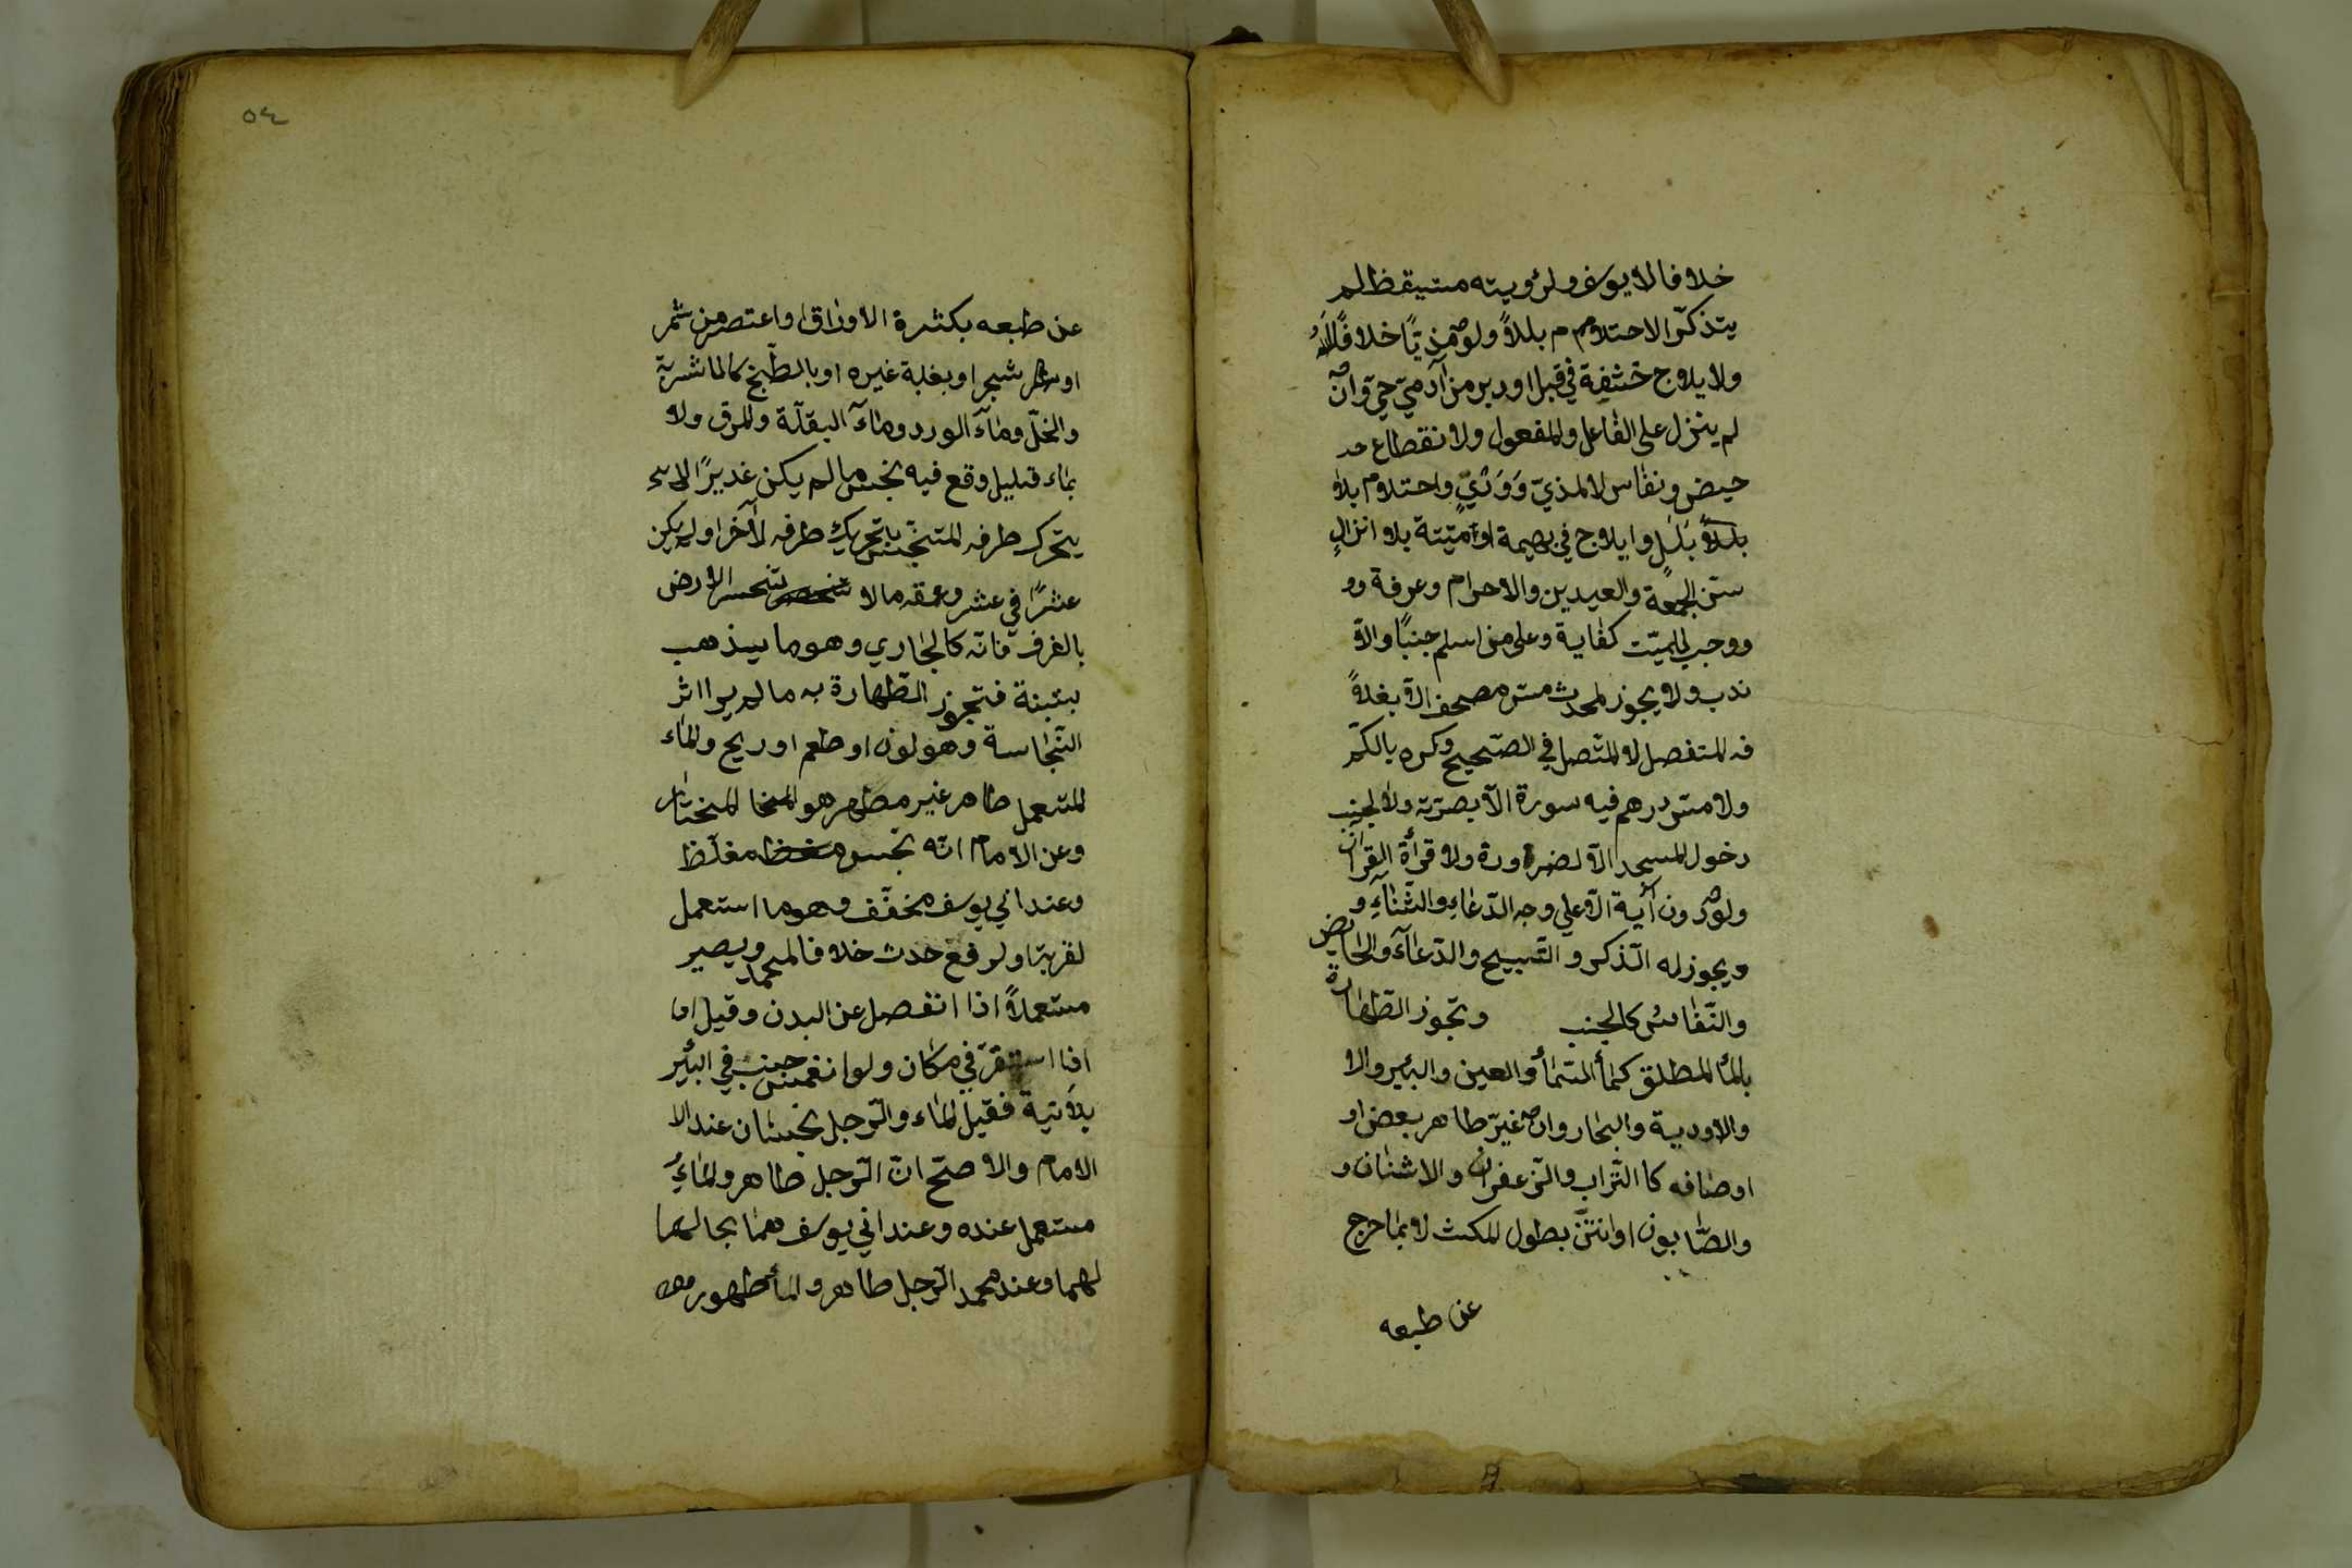 خلافا لابيوسف ولرؤيته مستيقظ لم
يتذكّر الاحتلام م بللاً ولو مذيًا خلافًا له
ولايلاج حشفة في قبل او دبر من آدميّ حيّ وان
لم ينزل على الفاعل والمفعول ولانقطاع
حيض ونفاس لا لمذيّ وَوَدْيٍّ واحتلام بلا
بلاً بَلَل وايلاج في بهيمة او ميّتة بلا انزال
سنّ للجمعة والعيدين والاحرام وعرفة وو
ووجب للميّت كفاية وعلى من اسلم جنبًا والاّ
ندب ولا يجوز لمحدث مسّ مصحف الاّ بغلا
فه المتفصل لا المتّصل في الصّحيح وكره بالكمّ
ولا مسّ درهم فيه سورة الاّ بصرّته ولا لجنب
دخول المسجد الاّ لضرورة ولا قرأة القرآن
ولو دون آية الاّ على وجه الدّعاء والثّناء و
ويجوز له الذّكر والتّسبيح والدّعاء والحايض
والنّفاس كالجنب وتجوز الطّهارة
بالمأ المطلق كمأ السّمأ والعين والبئر والا
والاودية والبحار وان غيّر طاهر بعض او
اوصافه كا التّراب والزّعفران والاشنان و
والصّابون او انتنّ بطول المكث لا بما خرج
عن طبعه
٥٤
عن طبعه بكثرة الاوراق او اعتصر من ثمر
او شجر او بغلبة غيره او بالطّبخ كالماشربة
والخلّ ومآء الورد ومآء البقلّة والمرق ولا
بماء قليل وقع فيه نجس ما لم يكن غديرًا لا
يتحرك طرفه المتنجّس بتحريك طرفه الآخر او لم يكن
عشرًا في عشر وعمقه ما لا تنحسر الارض
بالغرف فانّه كالجاري وهو ما يذهب
بتبنة فتجوز الطّهارة به ما لم ير اثر
النّجاسة وهو لون او طعم او ريح والماء
المستعمل طاهر غير مطهر هو المختا المختار
وعن الامام انّه نجس مغلّظ
وعند ابي يوسف مخفّف وهو ما استعمل
لقربة او لرفع حدث خلافا لمحمد ويصير
مستعملاً اذا انفصل عن البدن وقيل اذا
اذا استقرّ في مكان ولو انغمس جنب في البئر
بلا نية فقيل الماء والرّجل نجسان عند الا
الامام والاصحّ انّ الرّجل طاهر والماءُ
مستعمل عنده وعند ابي يوسف هما بحالهما
لهما وعند محمد الرّجل طاهر والمأ طهور